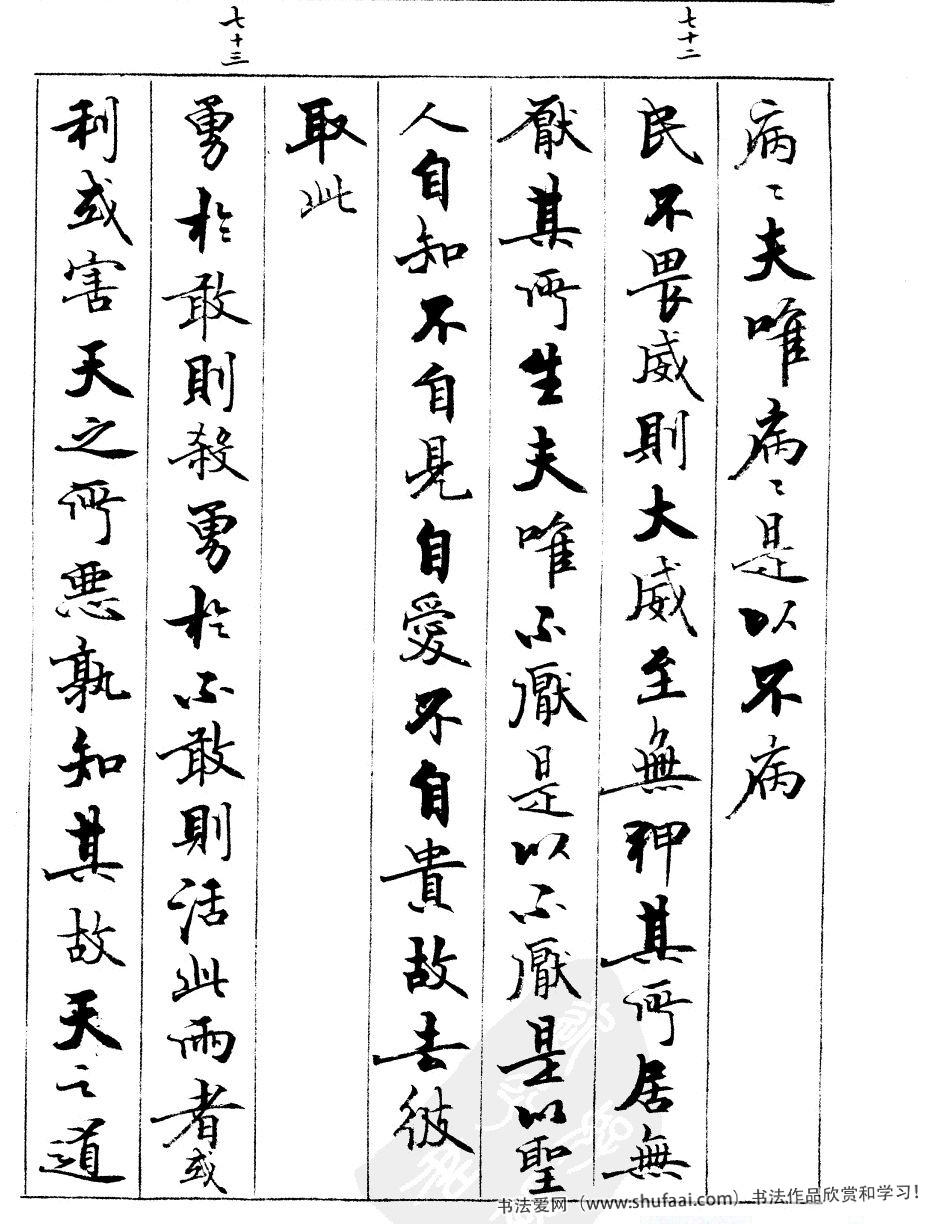 七十二
病〻夫唯病〻是以不病
民不畏威則大威至無狎其所居無
厭其所生夫唯不厭是以不厭是以聖
人自知不自見自愛不自貴故去彼
取此
七十三
勇於敢則殺勇於不敢則活此兩者或
利或害天之所悪孰知其故天之道
书法爱网（www.shufaai.com）书法作品欣赏和学习！